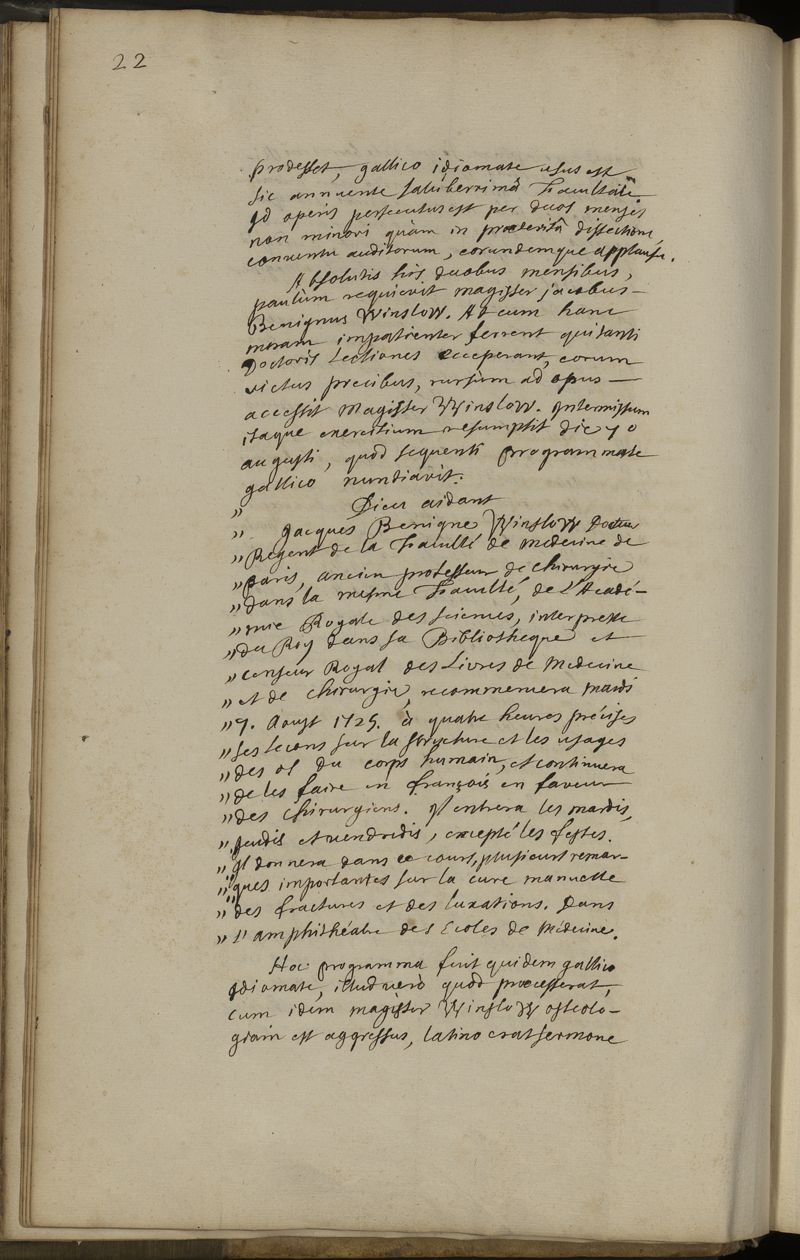 22
prodesset, gallico idiomate usus est.
sic annuente saluberrimâ Facultate
id operis persecutus est per duos menses
non minori quàm in præteritâ dissectione
conventu auditorum, eorundemque applausu.
Absolutis his duobus mensibus,
paulùm requievit magister jacobus-
Benignus Winslow. At cum hanc
moram impatienter ferrent qui tanti
Doctoris Lectiones exceperant, eorum
victus precibus, rursùm ad opus —
accessit Magister Winslow. Intermissum
itaque exercitium resumpsit die 7º
augusti, quod sequenti programmate
gallico nuntiavit.
" Dieu aidant
" Jacques Benigne Winslow Docteur
" Regent de la Faculté de Medecine de
" Paris, ancien professeur de chirurgie
" dans la mesme Faculté, de l'Acadé-
" mie Royale des sciences, interprete
" du Roy dans sa Bibliotheque et
" censeur Royal des Livres de Medecine
" et de chirurgie, recommencera mardi
" 7. Aoust 1725. à quatre heures précises
" ses lecons sur la structure et les usages
" des os du corps humain, et continuera
" de les faire en françois en faveur
" des chirurgiens. Il entrera les mardis,
" jeudis et vendredis, excepté les festes.
" Il donnera dans ce cours, plusieurs remar-
" ques importantes sur la cure manuelle
" des fractures et des luxations. Dans
" l'amphithéatre des Ecoles de Médecine.
Hoc programma fuit quidem gallico
Idiomate, illud verò quod præcesserat,
cum idem magister Winslow osteolo-
giam est aggressus, latino erat sermone